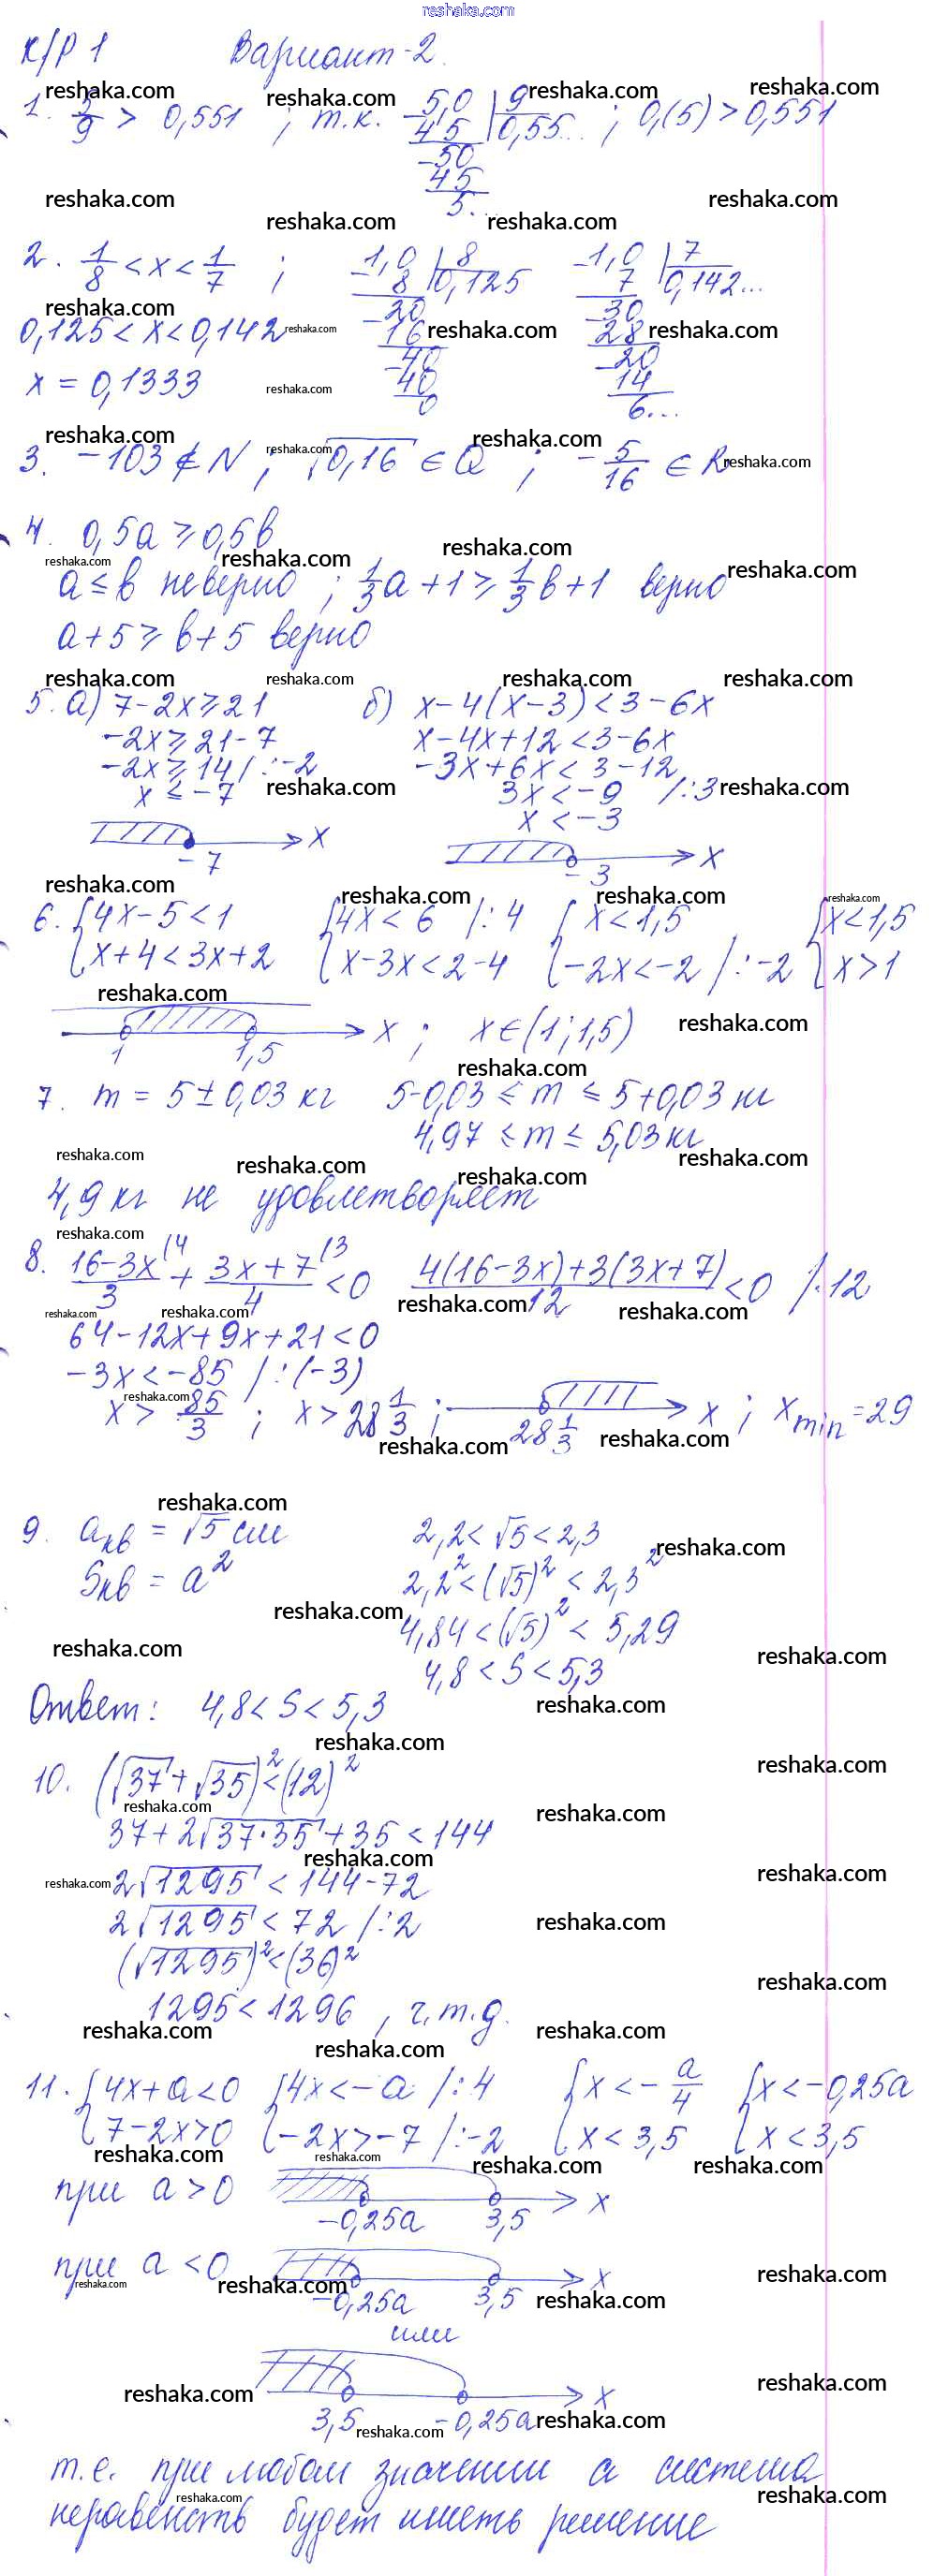 reshaka.com
К/Р 1 Вариант-2.
1. 5/9 > 0,551 ; т.к. 5,0 | 9 ; 0,(5) > 0,551
-45 0,55...
-50
45
5...
2. 1/8 < x < 1/7 ; -1,0 | 8 -1,0 | 7
8 0,125 7 0,142...
-20 -30
0,125 < x < 0,142 16 28
-40 -20
x = 0,1333 40 14
0 6...
3. -103 ∉ N ; √0,16 ∈ Q ; -5/16 ∈ R
4. 0,5a ≥ 0,5b
a ≤ b неверно ; 1/3a + 1 ≥ 1/3b + 1 верно
a + 5 ≥ b + 5 верно
5. а) 7 - 2x ≥ 21 б) x - 4(x - 3) < 3 - 6x
-2x ≥ 21 - 7 x - 4x + 12 < 3 - 6x
-2x ≥ 14 /: -2 -3x + 6x < 3 - 12
x ≤ -7 3x < -9 /:3
x < -3
x
-7 -3 x
6. { 4x - 5 < 1 { 4x < 6 /:4 { x < 1,5 { x < 1,5
{ x + 4 < 3x + 2 { x - 3x < 2 - 4 { -2x < -2 /: -2 { x > 1
1 1,5 x ; x ∈ (1; 1,5)
7. m = 5 ± 0,03 кг 5 - 0,03 ≤ m ≤ 5 + 0,03 кг
4,97 ≤ m ≤ 5,03 кг
4,9 кг не удовлетворяет
8. (16 - 3x)/3 |4 + (3x + 7)/4 |3 < 0 (4(16 - 3x) + 3(3x + 7))/12 < 0 /·12
64 - 12x + 9x + 21 < 0
-3x < -85 /: (-3)
x > 85/3 ; x > 28 1/3 ; 28 1/3 x ; x min = 29
9. aкв = √5 см 2,2 < √5 < 2,3
Sкв = a² 2,2² < (√5)² < 2,3²
4,84 < (√5)² < 5,29
4,8 < S < 5,3
Ответ: 4,8 < S < 5,3
10. (√37 + √35)² < (12)²
37 + 2√37·35 + 35 < 144
2√1295 < 144 - 72
2√1295 < 72 /:2
(√1295)² < (36)²
1295 < 1296 , ч.т.д.
11. { 4x + a < 0 { 4x < -a /:4 { x < -a/4 { x < -0,25a
{ 7 - 2x > 0 { -2x > -7 /: -2 { x < 3,5 { x < 3,5
при a > 0 -0,25a 3,5 x
при a < 0 -0,25a 3,5 x
или
3,5 -0,25a x
т.е. при любом значении a система
неравенств будет иметь решение